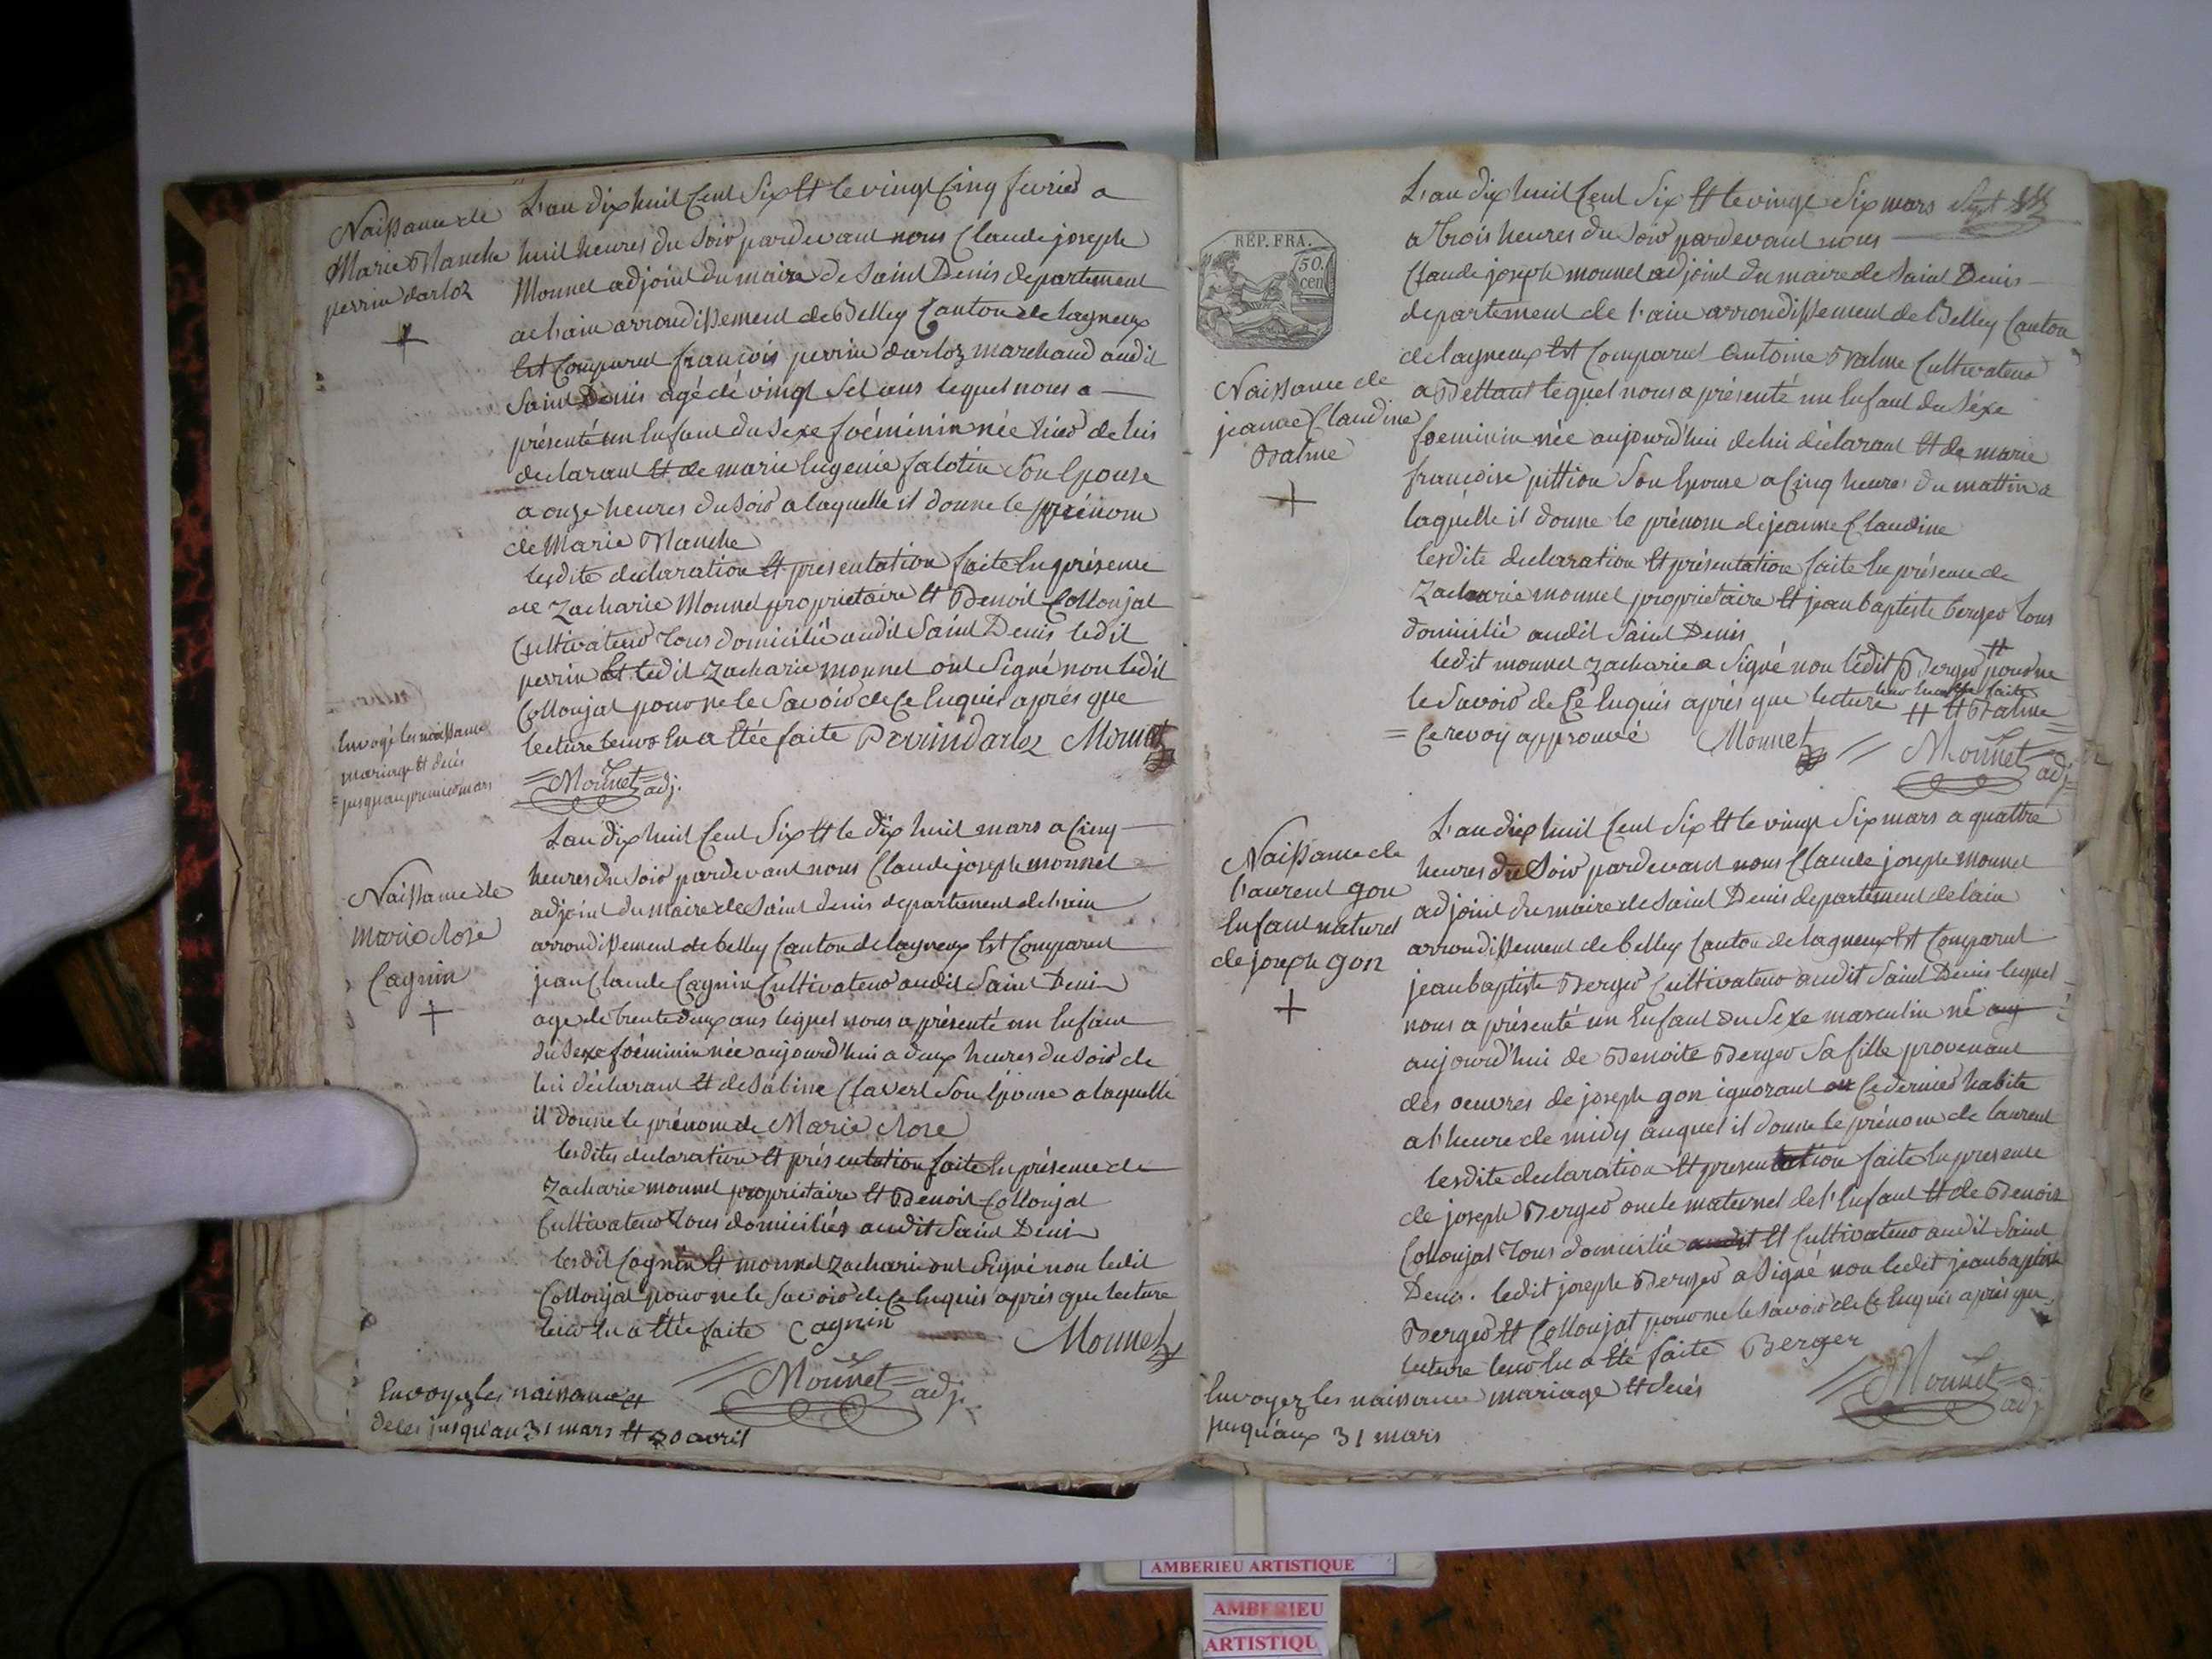 Naissance de
Marie Blanche
perrin darloz
L'an dix huit Cent Six Et le vingt Cinq fevrier a
huit heures du Soir pardevant nous Claude joseph
Monnet adjoint du maire de Saint Denis departement
de lain arrondissement de Belley Canton de lagneux
Est Comparut françois perrin darloz marchand audit
Saint Denis agé de vingt Set ans lequel nous a
présenté un Enfant du Sexe foéminin née hier de lui
declarant Et de marie Eugenie falotin Son Epouse
a onze heures du Soir a laquelle il donne le prénom
de Marie Blanche
lesdite declaration Et presentation faite En présence
de Zacharie Monnet proprietaire Et Benoit Collonjat
Cultivateur tous domicilié audit Saint Denis ledit
perrin Et ledit Zacharie monnet ont Signé non ledit
Collonjat pour ne le Savoir de Ce Enquis aprés que
lecture leur En a Etée faite Perrin Darloz Monnet
Monnet adj.
Envoyé les naissance
mariage Et décés
jusqu'au premier mars
Naissance de
Marie Rose
Cagnin
L'an dix huit Cent Six Et le dix huit mars a Cinq
heures du Soir pardevant nous Claude joseph monnet
adjoint du maire de Saint denis departement de lain
arrondissement de belley Canton de lagneux Est Comparut
jean Claude Cagnin Cultivateur audit Saint Denis
agé de trente deux ans lequel nous a présenté un Enfant
du Sexe foéminin née aujourd'hui a deux heures du Soir de
lui déclarant Et de Sabine Clavert Son Epouse a laquelle
il donne le prénom de Marie Rose
lesdites declaration Et présentation faite En présence de
Zacharie monnet proprietaire Et Benoit Collonjat
Cultivateur tous domiciliés audit Saint Denis
lesdit Cagnin Et monnet Zacharie ont Signé non ledit
Collonjat pour ne le Savoir de Ce Enquis aprés que lecture
leur En a Etée faite Cagnin Monnet
Monnet adj.
Envoyez les naissance et
décés jusqu'au 31 mars Et 30 avril
Sept
REP. FRA.
50.
cen
Naissance de
jeanne Claudine
Balme
L'an dix huit Cent Six Et le vingt Six mars
a trois heures du Soir pardevant nous
Claude joseph monnet adjoint du maire de Saint Denis
departement de l'ain arrondissement de Belley Canton
de lagneux Est Comparut Antoine Balme Cultivateur
a Bettant lequel nous a présenté un Enfant du Séxe
foeminin née aujourd'hui de lui déclarant Et de marie
françoise pittion Son Epouse a Cinq heures du mattin a
laquelle il donne le prénom de jeanne Claudine
lesdite declaration Et présentation faite En présence de
Zacharie monnet proprietaire Et jean baptiste berger tous
domicilié audit Saint Denis
ledit monnet Zacharie a Signé non ledit Berger # pour ne
le Savoir de Ce Enquis aprés que lecture leur En a Ete faite
# Et Balme
= Ce renvoy approuvée Monnet Monnet adj
Naissance de
laurent gon
Enfant naturel
de joseph gon
L'an dix huit Cent Six Et le vingt Six mars a quattre
heures du Soir pardevant nous Claude joseph monnet
adjoint du maire de Saint Denis departement de lain
arrondissement de belley Canton de lagneux Est Comparut
jean baptiste Berger Cultivateur audit Saint Denis lequel
nous a présenté un Enfant du Sexe masculin né auj
aujourd'hui de Benoite Berger Sa fille provenant
des oeuvres de joseph gon ignorant ou Ce dernier habite
a l'heure de midy auquel il donne le prénom de laurent
lesdite declaration Et presentation faite En presence
de joseph Berger oncle maternel de l'Enfant Et de Benoit
Collonjat tous domicilié audit Et Cultivateur audit Saint
Denis. ledit joseph Berger a Signé non ledit jean baptiste
Berger Et Collonjat pour ne le Savoir de Ce Enquis aprés que
lecture leur En a Eté faite Berger
Monnet adj
Envoyez les naissance mariage Et décés
jusqu'aux 31 mars
AMBERIEU ARTISTIQUE
AMBERIEU
ARTISTIQU